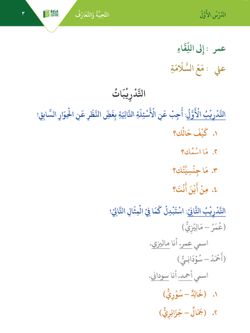 الدَّرْسُ الأَوَّلُ
التَّحِيَّةُ وَالتَّعَارُفُ
٣
عمر : إِلَى اللِّقَاءِ
علي : مَعَ السَّلَامَةِ
التَّدْرِيْبَاتُ
التَّدْرِيْبُ الْأَوَّلُ: أَجِبْ عَنِ الْأَسْئِلَةِ التَّالِيَةِ بِغَضِّ النَّظَرِ عَنِ الْحِوَارِ السَّابِقِ!
١. كَيْفَ حَالُكَ؟
٢. مَا اسْمُكَ؟
٣. مَا جِنْسِيَّتُكَ؟
٤. مِنْ أَيْنَ أَنْتَ؟
التَّدْرِيْبُ الثَّانِي: اسْتَبْدِلْ كَمَا فِي الْمِثَالِ التَّالِي:
(عُمَرُ – مَالِيْزِيّ)
اسمي عمر. أنا ماليزي.
(أَحْمَدُ – سُوْدَانِيّ)
اسمي أحمد. أنا سوداني.
١. (خَالِدٌ – سُوْرِيٌّ)
٢. (جَمَالٌ – جَزَائِرِيٌّ)